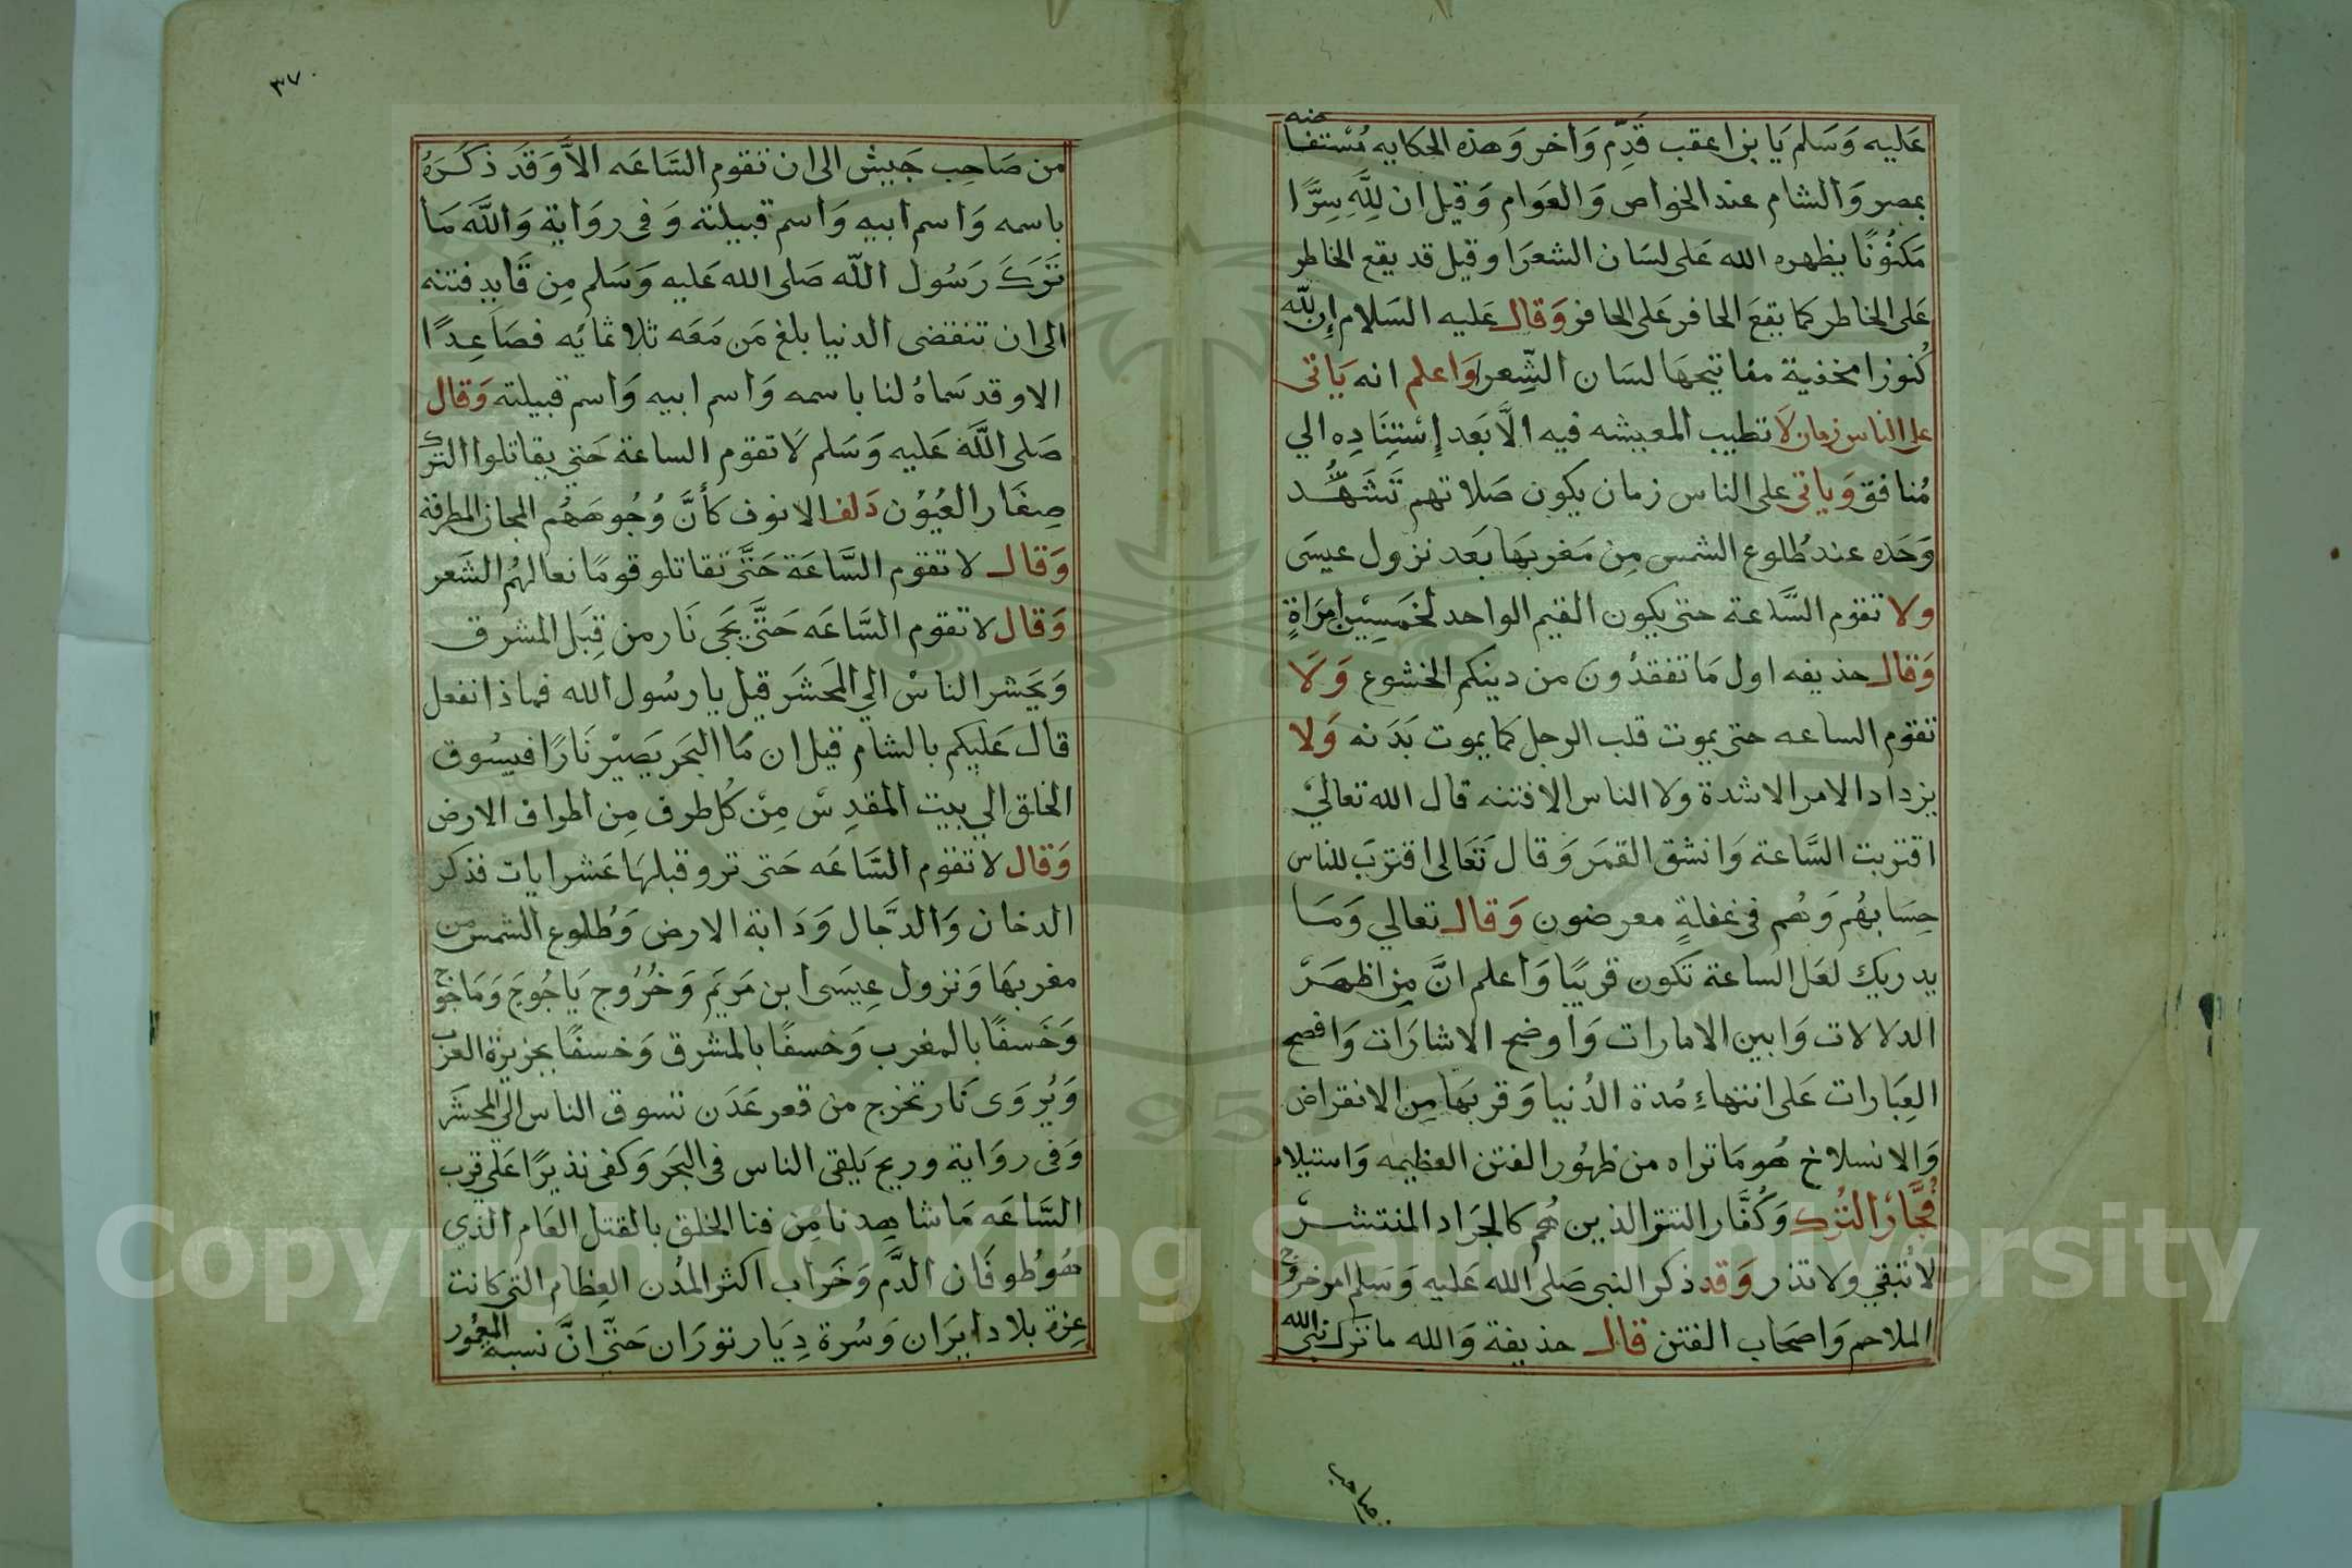 عَليه وَسَلم يَا بن اعقب قَدِّم وَاخر وَهذه الحكايه مُسْتفاضه
بمصر وَالشام عند الخواص وَالعَوام وَقيل ان لِلَّهِ سِرًّا
مَكنُونًا يظهره الله عَلى لسَان الشعرَا وقيل قد يقع الخاطر
عَلى الخاطر كما يقعَ الحافر عَلى الحافر وَقال عَليه السَلام إن لله
كُنوزا مخفية مفاتيحهَا لسَان الشِّعرا وَاعلم انه يَاتى
على الناس زمان لَا تطيب المعيشه فيه الَّا بَعد إسْتِنَادِه الي
مُنافق وَياتى على الناس زمان يكون صَلاتهم تَشَهُّد
وَحَده عند طُلوع الشمس مِن مَغربهَا بَعد نزول عيسَى
ولا تقوم السَّاعة حتى يكون القيم الواحد لخمسِيْن امرَاةٍ
وَقال حذيفه اول مَا تفقدُونَ من دينكم الخشوع وَلَا
تقوم الساعه حتى يموت قلب الرجل كما يموت بَدَنه وَلا
يزداد الامر الا شدة ولا الناس الا فتنه قال الله تعاليْ
اقتربت السَّاعة وَانشق القمَر وَقال تَعَالى اقترَبَ للناس
حِسَابهُم وَهُم فى غفلةٍ معرضون وَقال تعالي وَمَا
يدريك لعَل الساعة تكون قريبًا وَاعلم انَّ مِن اظهَرْ
الدلالات وَابين الامارات وَاوضح الاشارَات وَافصح
العِبَارات عَلى انتهاءِ مُدة الدُنيا وَقربهَا مِن الانقراض
وَالانسلاخ هُو مَا تراه من ظهُور الفتن العظيمه وَاستيلا
فُجَّارُ التُرك وَكُفَّار التتر الذين هُم كالجرَاد المنتشرْ
لا تُبقي ولا تذر وَقد ذكر النبى صَلى الله عَليه وَسَلم امر خروج
الملاحم وَاصحَاب الفتن قال حذيفة وَالله ما ترك نبى الله
من صَاحب
٣٧
من صَاحِب جَيش الى ان تقوم السَاعَه الاَّ وَقَد ذكَرَهُ
باسمه وَاسم ابيه وَاسم قبيلته وَفى روَاية وَاللَّه مَا
تَرَكَ رَسُول اللّه صَلى الله عَليه وَسَلم مِن قَايد فتنه
الى ان تنقضى الدنيا بلغ مَن مَعَه ثلاثمائه فصَاعِدًا
الا وقد سَماهُ لنا باسمه وَاسم ابيه وَاسم قبيلته وَقال
صَلى اللَّه عَليه وَسَلم لَا تقوم الساعة حَتي يقاتلوا الترك
صِغَار العُيُوْن دَلف الانوف كأنَّ وُجُوهَهُم المجان المطرقة
وَقال لا تقوم السَّاعَة حَتَّى تقاتلو قومًا نعالهُم الشَعر
وَقال لا تقوم السَّاعَه حَتَّى يَجَى نَار من قِبَل المشرق
وَيَحشر الناسْ الي المَحشَر قيل يا رسُول الله فماذا نفعل
قال عَليكم بالشام قيل ان مَا البَحَر يَصيْر نَارًا فيسُوق
الخلق الي بيت المقدِسْ مِنْ كُل طرف مِن اطراف الارض
وَقال لا تقوم السَّاعَه حَتى ترو قبلهَا عَشر ايات فذكر
الدخان وَالدَّجَال وَدَابة الارض وَطُلوع الشمس من
مغربهَا وَنزول عِيسَى ابن مَريَم وَخُرُوج يَاجُوجَ وَمَاجوج
وَخَسفًا بالمغرب وَخسفًا بالمشرق وَخسفًا بجزيرة العرب
وَيُروَى نَار تخرج من قعر عَدَن تسوق الناس الي المحشَر
وَفى روَاية وريح يَلقى الناس فى البحَر وَكفى نذيرًا عَلي قرب
السَّاعَه مَا شاهِدنا مِن فنا الخلق بالقتل العَام الذي
هُوَ طُوفَان الدَّم وَخَراب اكثر المدُن العِظام التى كانت
عِزة بلاد ايرَان وَسُرة دِيَار تورَان حَتَّى انَّ نسبه المعمُور